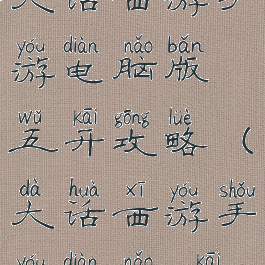 大话西游手
yóu diàn nǎo bǎn
游电脑版
wǔ kāi gōng lüè
五开攻略（
dà huà xī yóu shǒu
大话西游手
yóu diàn nǎo kāi